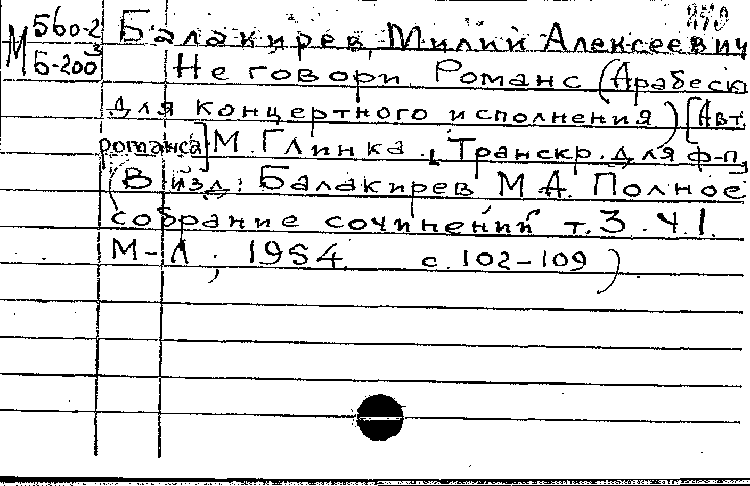 М 560-2
Б-200
Балакирев, Милий Алексеевич
Не говори Романс (Арабеск
для концертного исполнения) [Авт.
романса] М. Глинка. [Транскр. для ф-п]
(В изд: Балакирев М А. Полное
собрание сочинений т. 3. ч 1.
М-Л; 1954 с. 102-109)